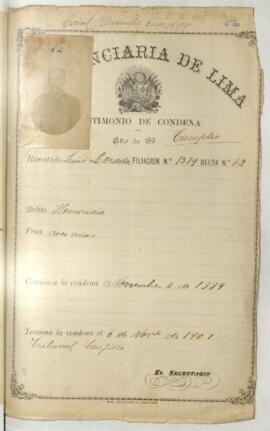 56
62
PENITENCIARIA DE LIMA
TESTIMONIO DE CONDENA
Año de 189 Cumplió
Rematado Luis Lozada FILIACION N.º 1319 CELDA N.º 62
Delito Homicidio
Pena doce años
Comienza la condena Noviembre 6 de 1889
Termina la condena el 6 de Novre de 1901
Tribunal Trujillo
EL SECRETARIO